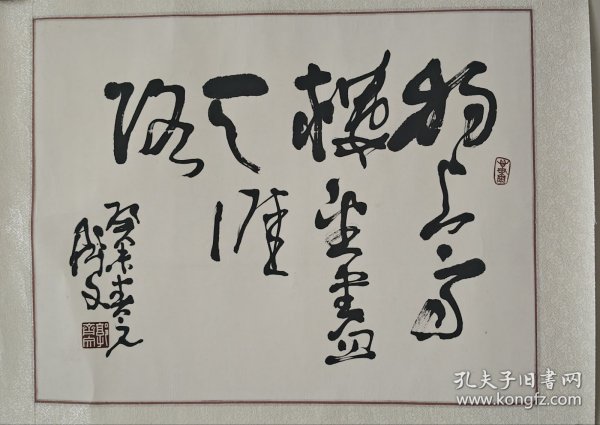 独上高
楼望尽
天涯
路
癸未春元
孔夫子旧書网
www.kongfz.com